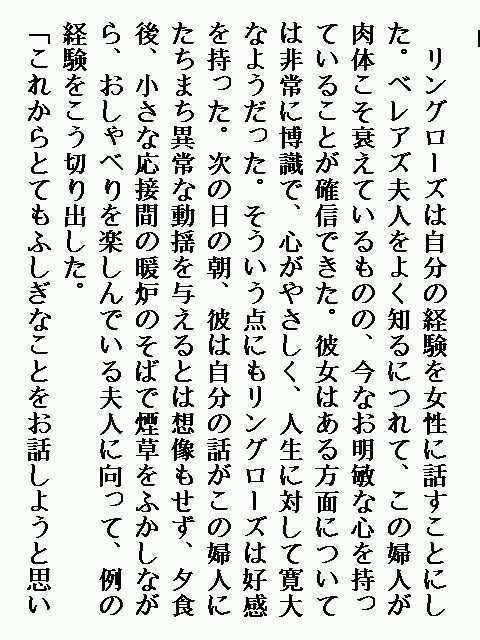 リングローズは自分の経験を女性に話すことにし
た。ベレアズ夫人をよく知るにつれて、この婦人が
肉体こそ衰えているものの、今なお明敏な心を持っ
ていることが確信できた。彼女はある方面について
は非常に博識で、心がやさしく、人生に対して寛大
なようだった。そういう点にもリングローズは好感
を持った。次の日の朝、彼は自分の話がこの婦人に
たちまち異常な動揺を与えるとは想像もせず、夕食
後、小さな応接間の暖炉のそばで煙草をふかしなが
ら、おしゃべりを楽しんでいる夫人に向って、例の
経験をこう切り出した。
「これからとてもふしぎなことをお話しようと思い